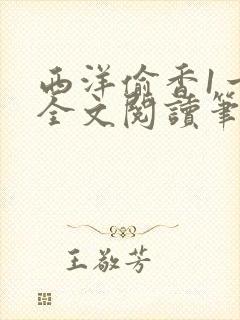 西洋偷香1一
全文閱讀筆
王敬芳